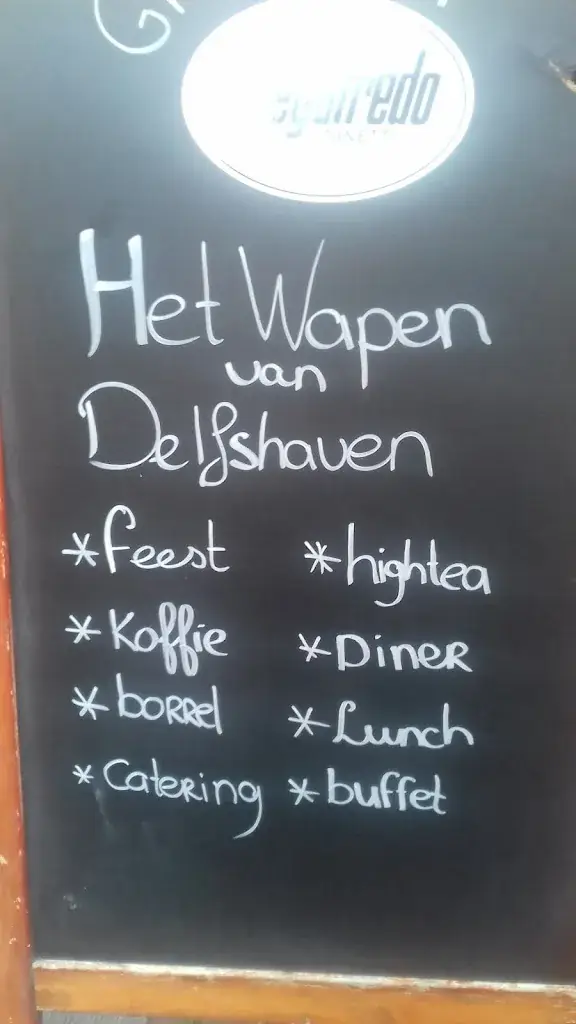 Het Wapen
van
Delfshaven
*feest *hightea
*Koffie *Diner
*borrel *Lunch
*Catering *buffet